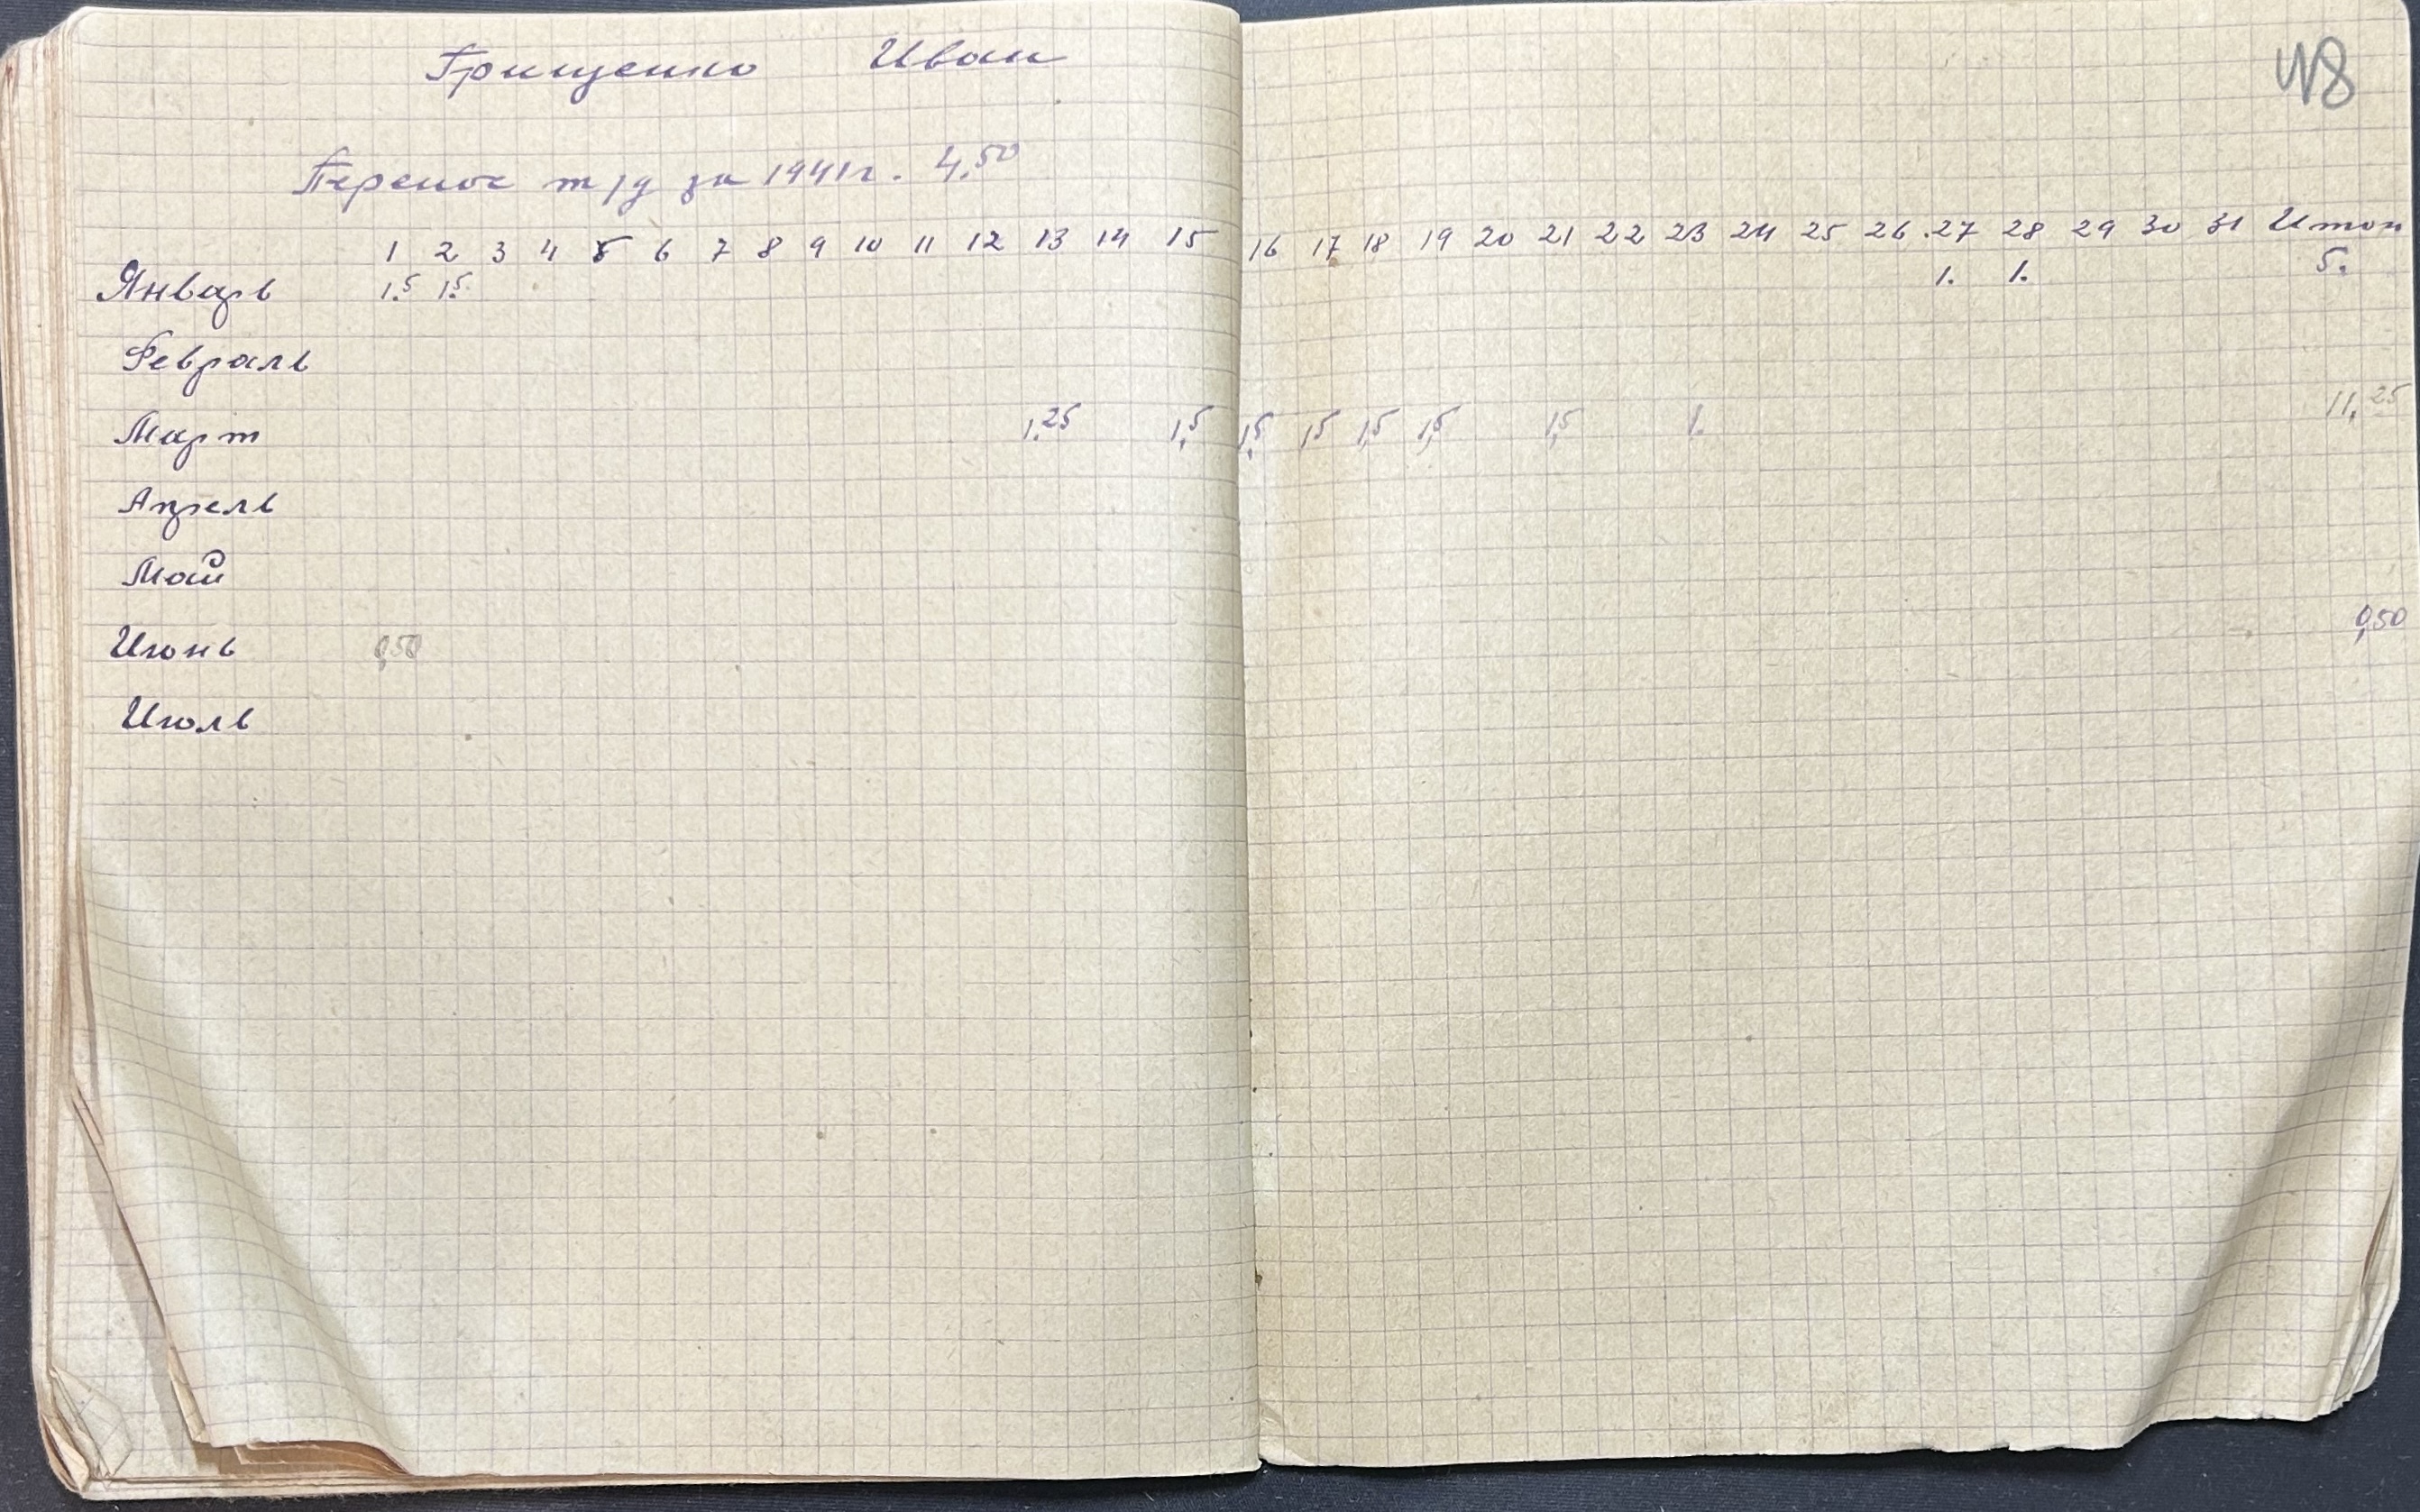 Грищенко Иван
118
Перенос т/д за 1941г. 4,50
1 2 3 4 5 6 7 8 9 10 11 12 13 14 15 16 17 18 19 20 21 22 23 24 25 26 27 28 29 30 31 Итог
Январь 1.5 1.5 1. 1. 5.
Февраль
Март 1,25 1,5 1,5 1,5 1,5 1,5 1,5 1. 11,25
Апрель
Май
Июнь 0,50 0,50
Июль